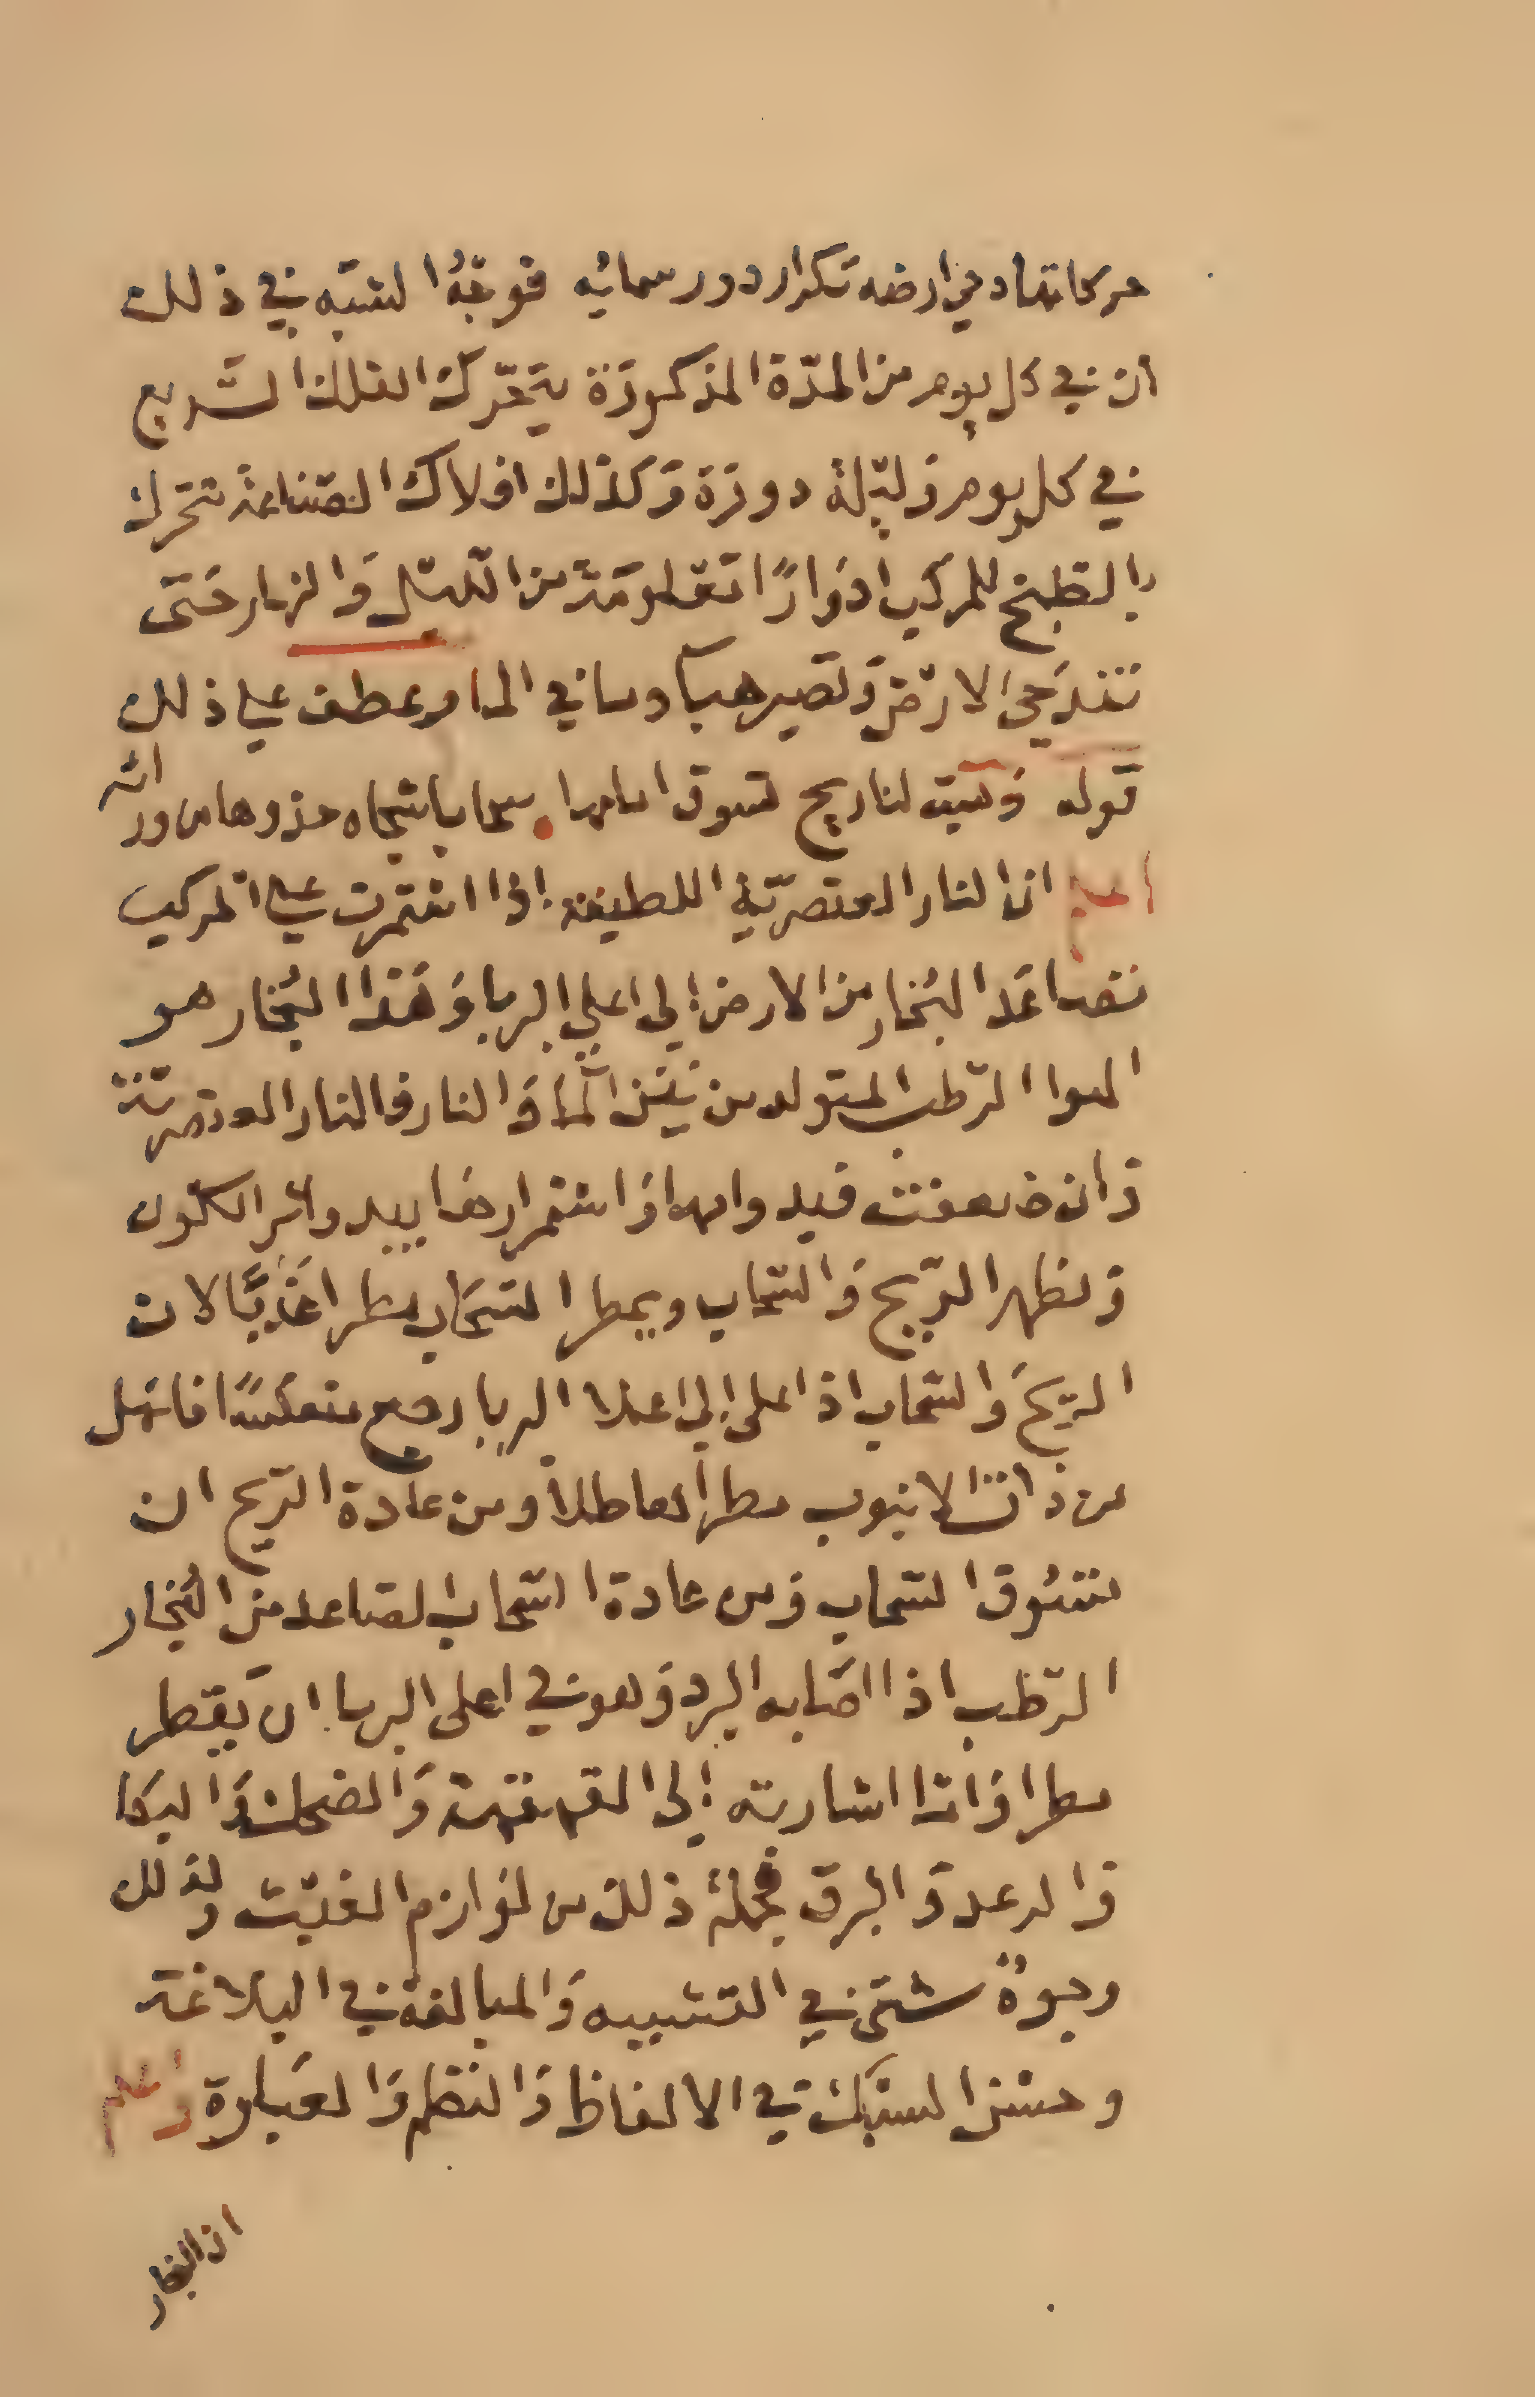 حركاتها دحي ارضه تكرار دور سمائه فوجه الشبه في ذلك
ان في كل يوم من المدة المذكورة يتحرك الفلك السريع
في كل يوم وليلة دورة وكذلك افلاك الصناعة تتحرك
بالطبخ للمركب ادوارًا معلومة من الليل والنهار حتى
تندحي الارض وتصير هبا وسافي الما وعطف علي ذلك
قوله وهبت لنا ريح تسوق امامها سحابا تجاه حذوها من ورائه
اعلم ان النار العنصرية اللطيفة اذا استمرت علي المركب
تصاعد البخار من الارض الي اعلي البربا وهذا البخار هو
الهوا الرطب المتولد من بين الما والنار فالنار العنصرية
وان ضعفت فبدوامها واستمرارها يبدوا سر الكون
وتظهر الريح والسحاب ويمطر السحاب مطرا غديًا لان
الريح والسحاب اذا علي الي اعلا البربا رجع منعكسًا فانهل
من ذات الانبوب مطرا هاطلا ومن عادة الريح ان
تسوق السحاب ومن عادة السحاب الصاعد من البخار
الرطب اذا اصابه البرد وهو في اعلي البربا ان يقطر
مطرا واما اشارته الي القهقهة والضحك والبكا
والرعد والبرق فجملة ذلك من لوازم الغيث ولذلك
وجوة شتى في التشبيه والمبالغة في البلاغة
وحسن السبك في الالفاظ والنظم والعبارة واعلم
ان البخار